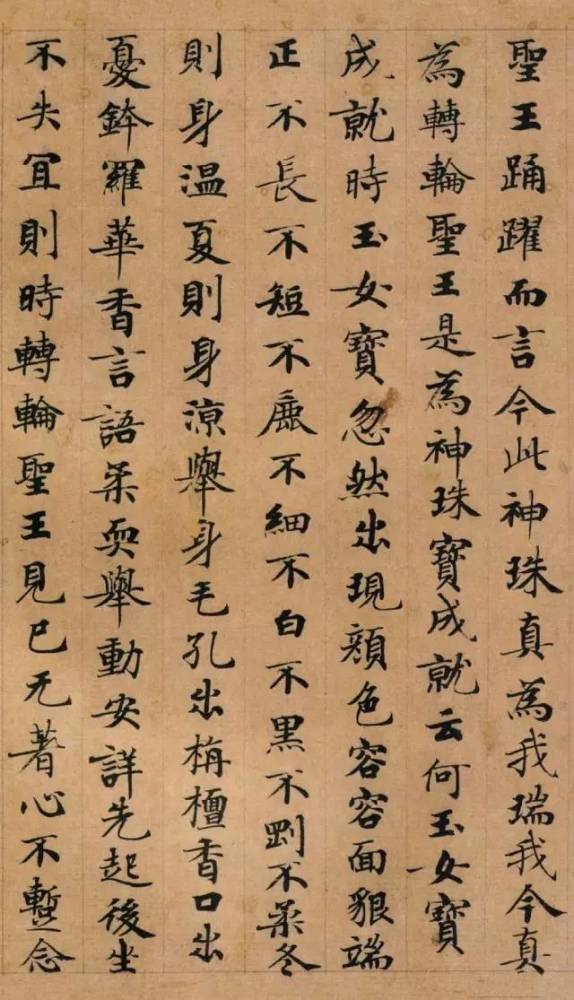 聖王踊躍而言今此神珠真為我瑞我今真
為轉輪聖王是為神珠寶成就云何玉女寶
成就時玉女寶忽然出現顏色容容面貌端
正不長不短不麁不細不白不黑不剛不柔冬
則身温夏則身涼舉身毛孔出栴檀香口出
憂鉢羅華香言語柔耎舉動安詳先起後坐
不失宜則時轉輪聖王見已无著心不暫念